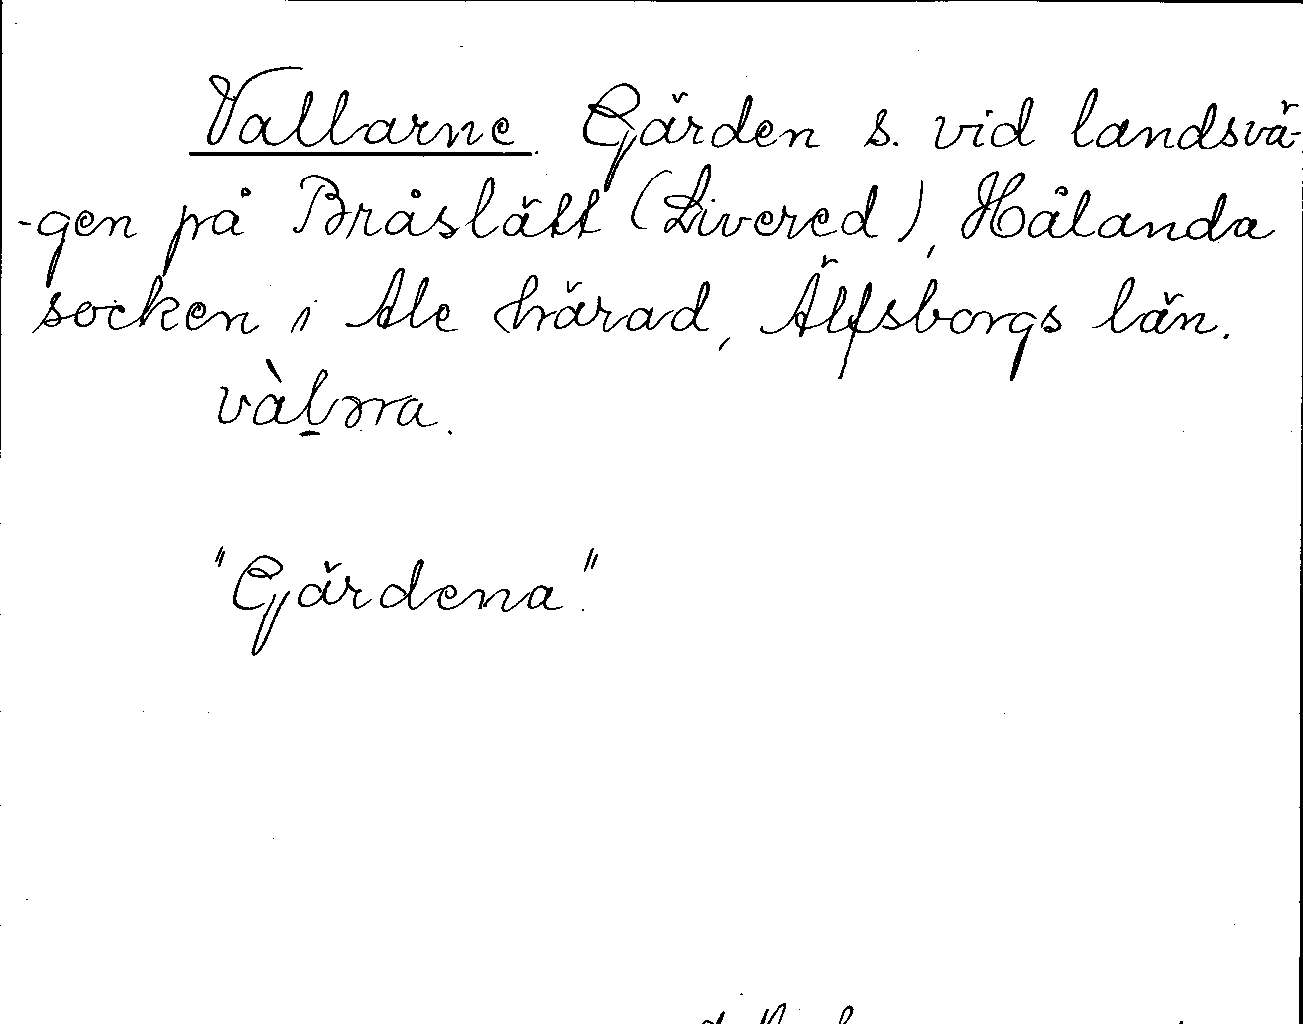 Vallarne. Gärden s. vid landsvä-
-gen på Bråslätt (Livered), Hålanda
socken i Ale härad, Älfsborgs län.
vàl̠ərra.
"Gärdena".